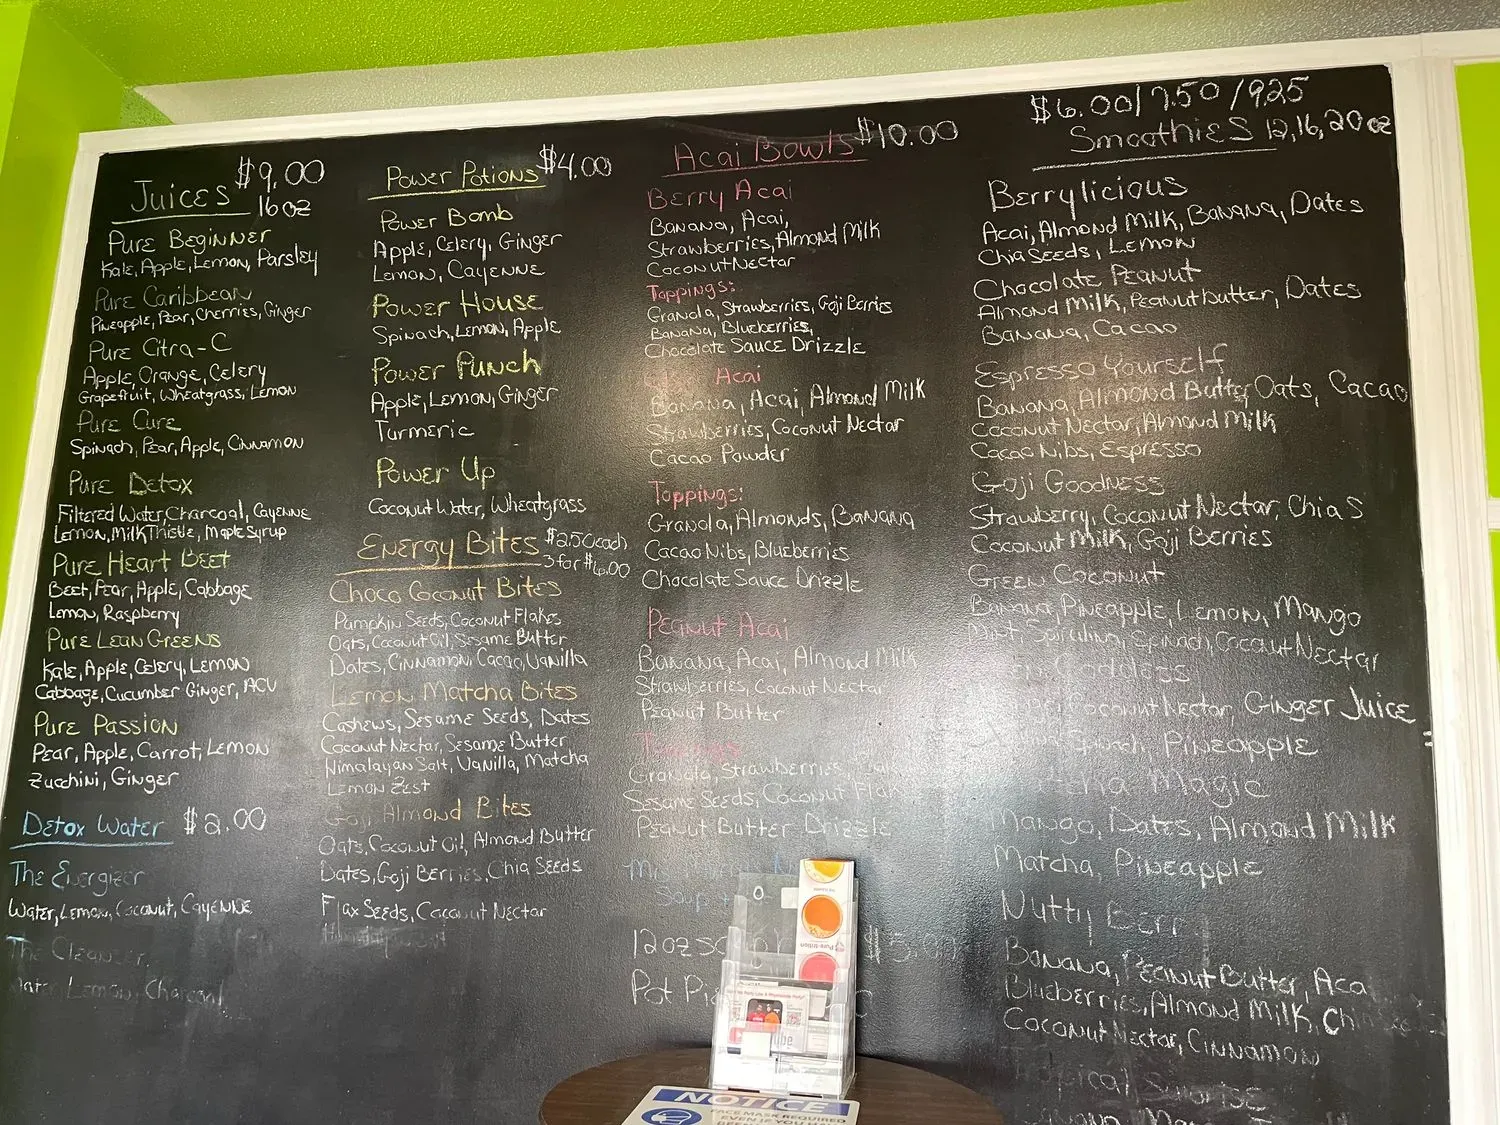 Juices $9.00
16 oz
Pure Beginner
Kale, Apple, Lemon, Parsley
Pure Caribbean
Pineapple, Pear, Cherries, Ginger
Pure Citra-C
Apple, Orange, Celery
Grapefruit, Wheatgrass, Lemon
Pure Cure
Spinach, Pear, Apple, Cinnamon
Pure Detox
Filtered Water, Charcoal, Cayenne
Lemon, Milk Thistle, Maple Syrup
Pure Heart Beet
Beet, Pear, Apple, Cabbage
Lemon, Raspberry
Pure Lean Greens
Kale, Apple, Celery, Lemon
Cabbage, Cucumber Ginger, ACV
Pure Passion
Pear, Apple, Carrot, Lemon
Zucchini, Ginger
Detox Water $2.00
The Energizer
Water, Lemon, Coconut, Cayenne
The Cleanzer
Water, Lemon, Charcoal
Power Potions $4.00
Power Bomb
Apple, Celery, Ginger
Lemon, Cayenne
Power House
Spinach, Lemon, Apple
Power Punch
Apple, Lemon, Ginger
Turmeric
Power Up
Coconut Water, Wheatgrass
Energy Bites $2.50 each
3 for $6.00
Choco Coconut Bites
Pumpkin Seeds, Coconut Flakes
Oats, Coconut Oil, Sesame Butter
Dates, Cinnamon, Cacao, Vanilla
Lemon Matcha Bites
Cashews, Sesame Seeds, Dates
Coconut Nectar, Sesame Butter
Himalayan Salt, Vanilla, Matcha
Lemon Zest
Goji Almond Bites
Oats, Coconut Oil, Almond Butter
Dates, Goji Berries, Chia Seeds
Flax Seeds, Coconut Nectar
Acai Bowls $10.00
Berry Acai
Banana, Acai,
Strawberries, Almond Milk
Coconut Nectar
Toppings:
Granola, Strawberries, Goji Berries
Banana, Blueberries,
Chocolate Sauce Drizzle
Acai
Banana, Acai, Almond Milk
Strawberries, Coconut Nectar
Cacao Powder
Toppings:
Granola, Almonds, Banana
Cacao Nibs, Blueberries
Chocolate Sauce Drizzle
Peanut Acai
Banana, Acai, Almond Milk
Strawberries, Coconut Nectar
Peanut Butter
Toppings
Granola, Strawberries,
Sesame Seeds, Coconut Flak
Peanut Butter Drizzle
Soup
12 oz $5.00
Pot Pie
$6.00/7.50/925
Smoothies 12,16,20 oz
Berrylicious
Acai, Almond Milk, Banana, Dates
Chia Seeds, Lemon
Chocolate Peanut
Almond Milk, Peanut butter, Dates
Banana, Cacao
Espresso Yourself
Banana, Almond Butter, Oats, Cacao
Coconut Nectar, Almond Milk
Cacao Nibs, Espresso
Goji Goodness
Strawberry, Coconut Nectar, Chia S
Coconut Milk, Goji Berries
Green Coconut
Banana, Pineapple, Lemon, Mango
Mint, Spirulina, Spinach, Coconut Nectar
Goddess
Coconut Nectar, Ginger Juice
Pineapple
Magic
Mango, Dates, Almond Milk
Matcha, Pineapple
Nutty Berr
Banana, Peanut Butter, Aca
Blueberries, Almond Milk, Ch
Coconut Nectar, Cinnamon
Tropical Sunrise
NOTICE
FACE MASK REQUIRED
EVEN IF YOU HAVE